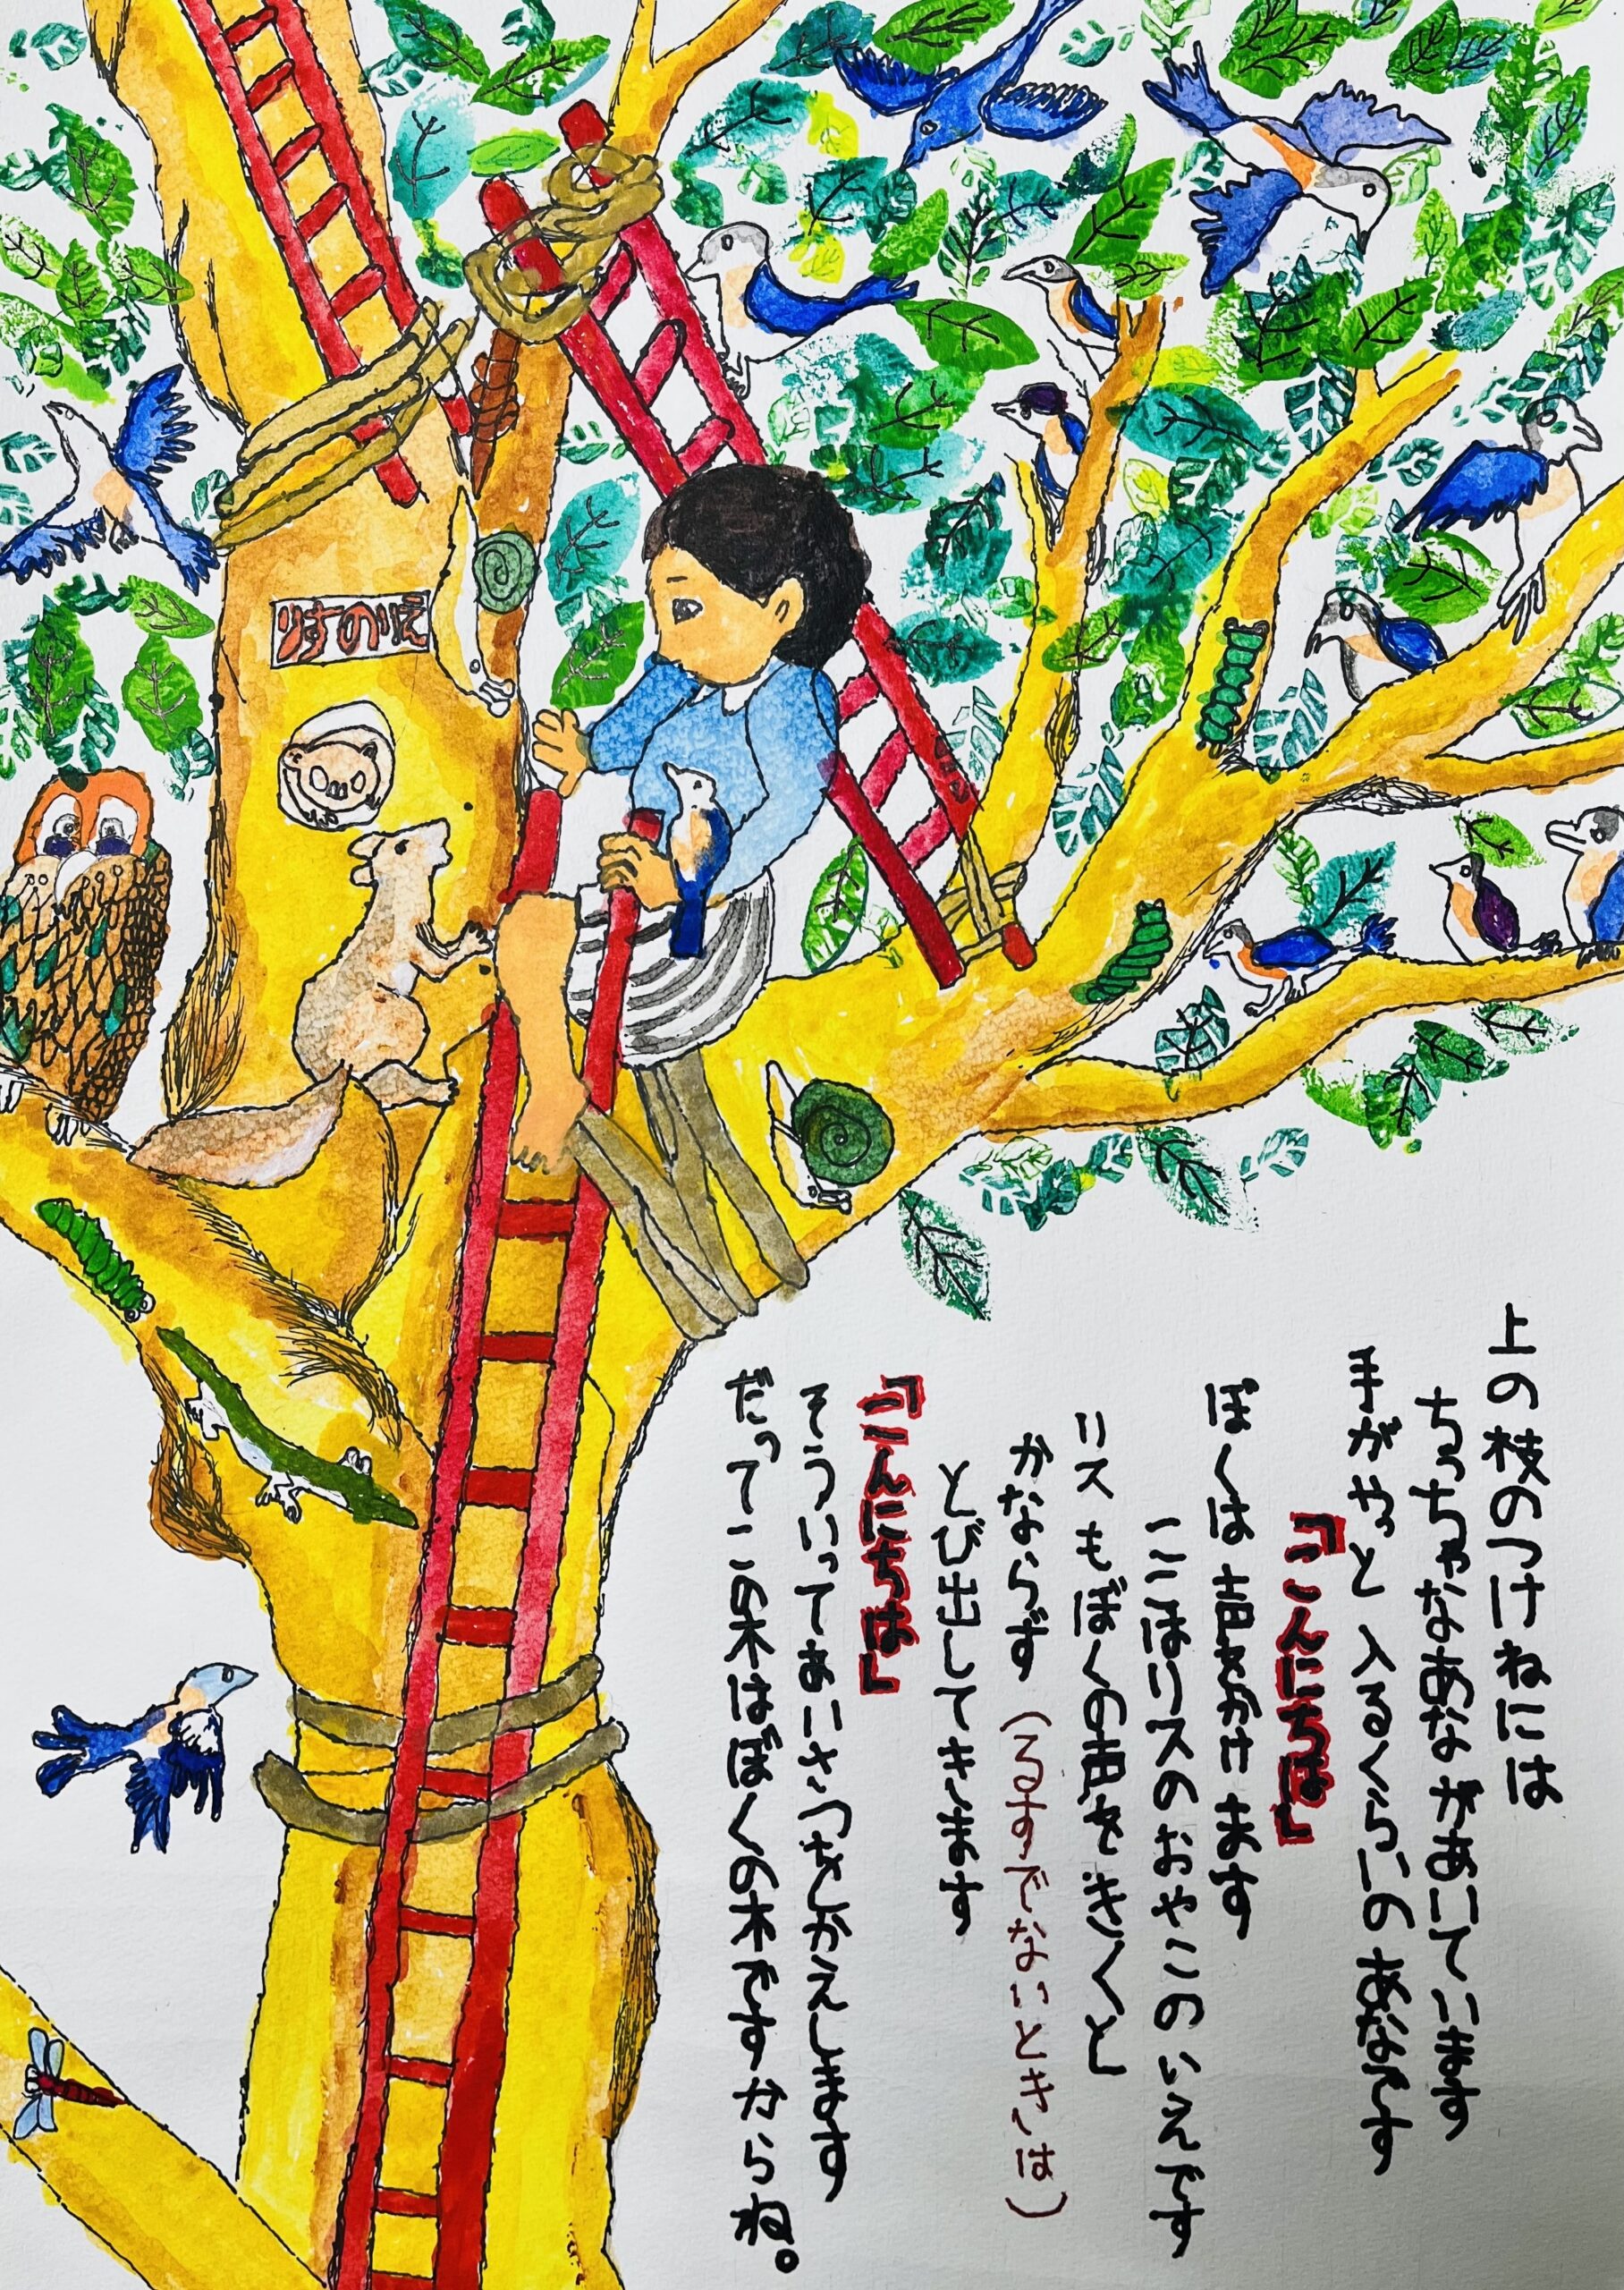 りすのいえ
上の枝のつけねには
ちっちゃなあながあいています
手がやっと入るくらいのあなです
「こんにちは」
ぼくは声をかけます
ここはリスのおやこのいえです
リスもぼくの声をきくと
かならず(るすでないときは)
とび出してきます
「こんにちは」
そういってあいさつをしかえします
だってこの木はぼくの木ですからね。